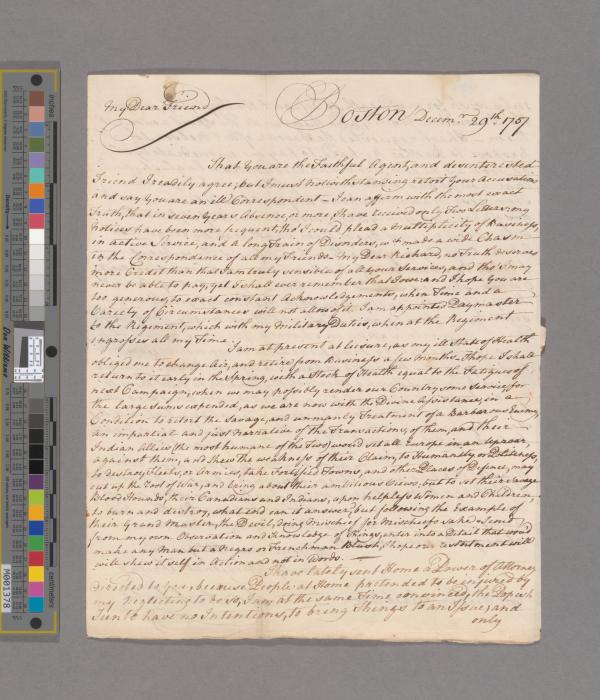 My Dear Friend
Boston Decem.r 29.th 1757
That You are the Faithful Agent, and disinterested
Friend I readily agree, but I must notwithstanding retort Your Accusation
and say You are an ill Correspondent – I can affirm with the most exact
Truth, that in seven Years Absence, or more, I have received only Two Letters, my
Notices have been more frequent, tho' I could plead a Multiplicity of Business,
in active Service, and a long Train of Disorders, wch made a wide Chasm
in the Correspondence of all my Friends – My Dear Richard, no Truth deserves
more Credit than that I am truly sensible of all Your Services, and tho' I may
never be able to pay, yet I shall ever remember that I owe: and I hope You are
too generous, to exact constant Acknowledgements, when Time and a
Variety of Circumstances will not allow of it. I am appointed Paymaster
to the Regiment, which with my Military Duties, when at the Regiment
ingrosses all my Time.
I am at present at leisure, as my ill State of Health
obliged me to change Air, and retire from Business a few Months. I hope I shall
return to it early in the Spring, with a Stock of Health equal to the Fatigues of
next Campaign, when we may possibly render our Country some Service, for
the large Sums expended, as we are now with the Divine Assistance, in a
Condition to retort the Savage, and unmanly Treatment of a Barbarous Enemy,
an impartial and just Narrative of the Transactions, of them, and their
Indian Allies (the most humane of the Two) would set all Europe in an Uproar,
against them, and shew the weakness of their Claim, to Humanity or Politeness,
to destroy Fleets, or Armies, take Fortified Towns, and other Places of Defence, may
cut up the Root of War, and bring about their ambitious Views, but to set their Savage
Blood Hounds, their Canadians and Indians, upon helpless Women and Children,
to burn and destroy, what end can it answer, but following the Example of
their Grand Master, the Devil, doing Mischief for Mischief's sake. I could
from my own Observation and Knowledge of Things, enter into a Detail that would
make any Man but a Negro or Frenchman Blush, I hope our resentment will
will shew it self in Action and not in Words.
I have lately sent Home a Power of Attorney
directed to You, because People at Home pretended to be injured by
my neglecting to do so, I am at the same Time convinced, the Popish
Aunts have no Intentions, to bring Things to an Issue, and
only
inches
centimetres
Don Williams
M001378